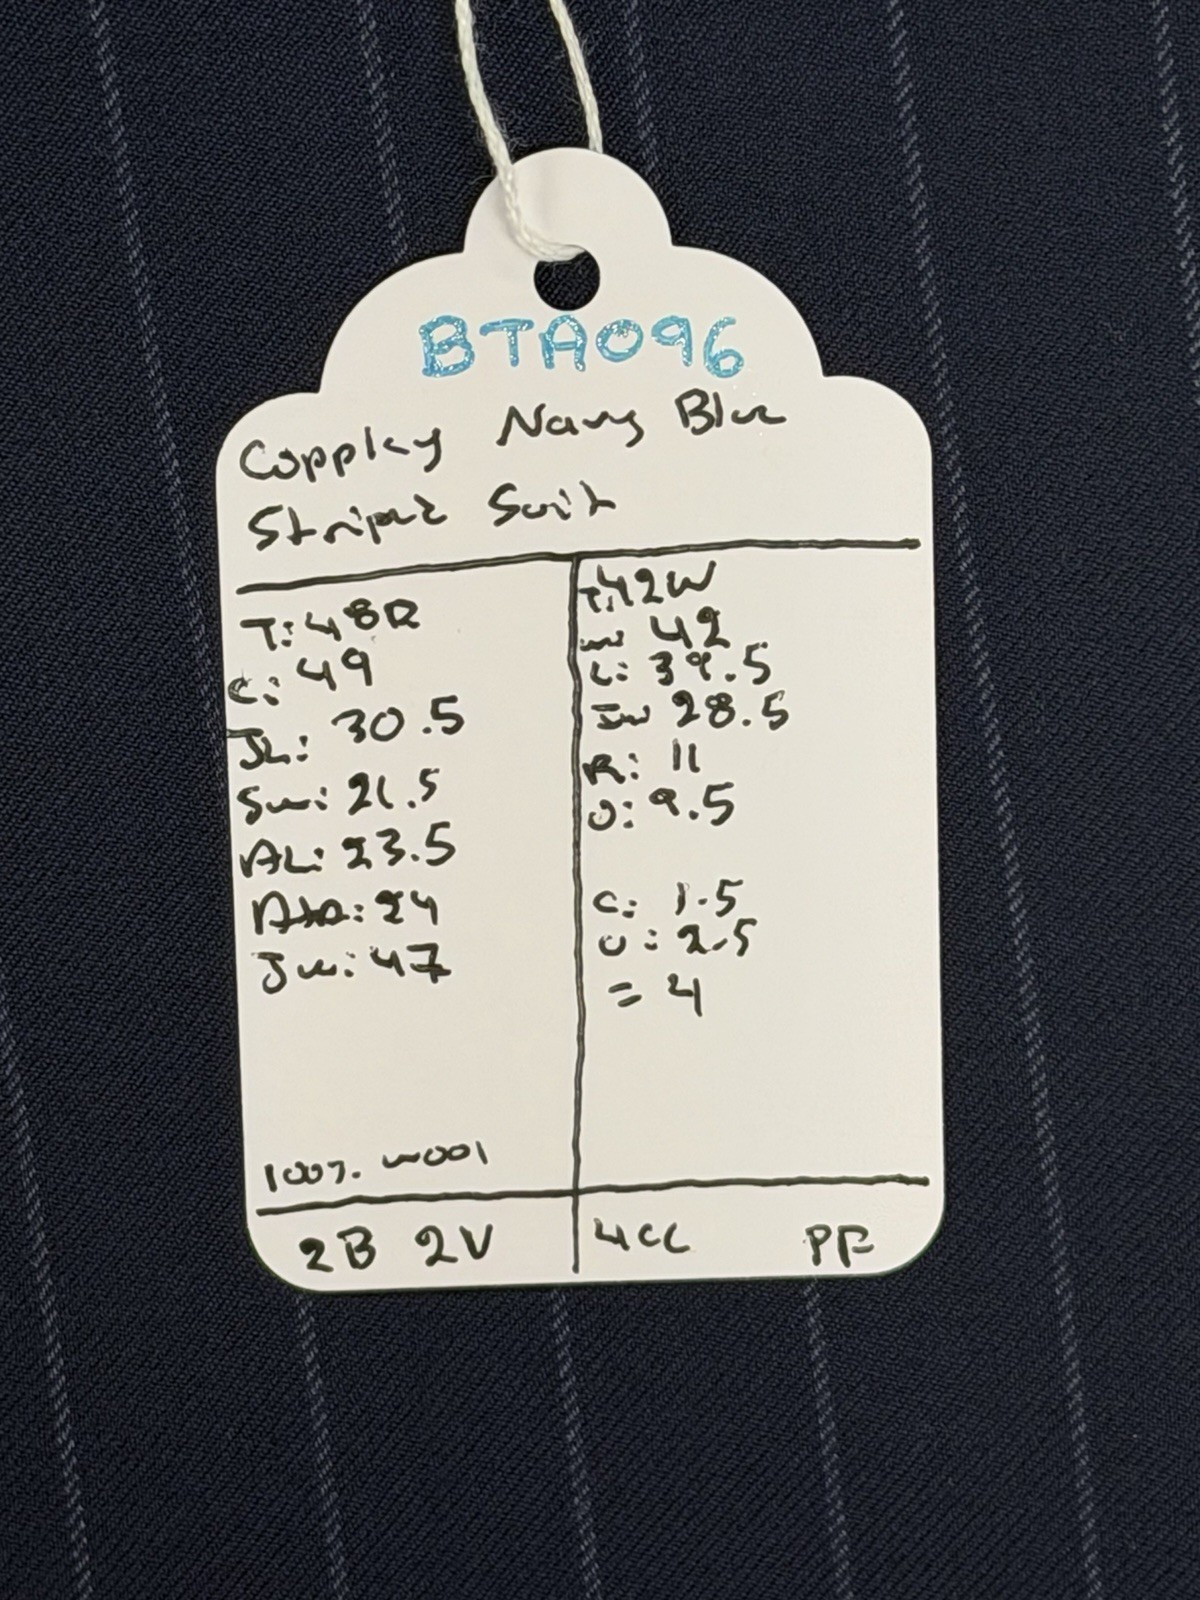 BTA096
Coppley Navy Blue
Stripe Suit
T: 48R
C: 49
JL: 30.5
Sw: 21.5
AL: 23.5
24
Jw: 47
100% wool
T: 42W
w 42
L: 39.5
In 28.5
R: 11
O: 9.5
C: 1.5
U: 2.5
= 4
2B 2V
4CC PF